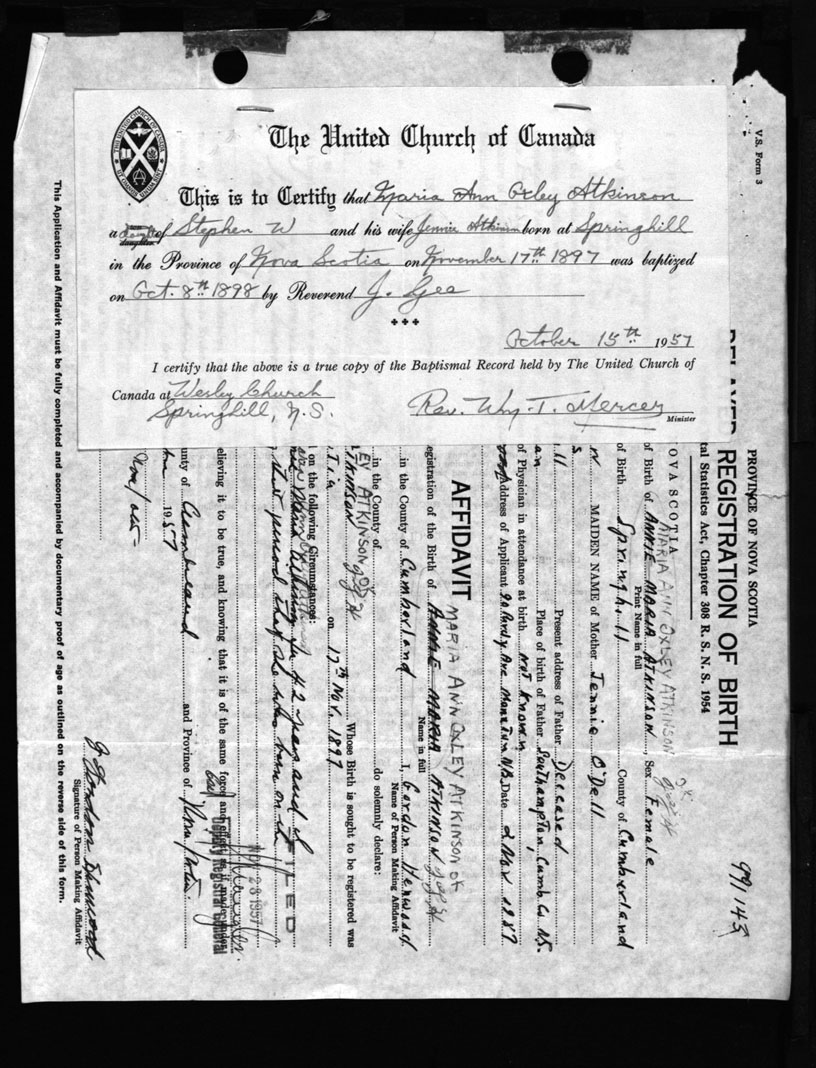 The United Church of Canada
This is to Certify that Maria Ann Oxley Atkinson
a daught of Stephen W and his wife Jennie Atkinson born at Springhill
daughter
in the Province of Nova Scotia on November 17th 1897 was baptized
on Oct. 8th 1898 by Reverend J. Gee
October 15th 1957
I certify that the above is a true copy of the Baptismal Record held by The United Church of
Canada at Wesley Church
Springhill, N.S.
Rev. Wm. T. Mercer
Minister
V.S. Form 3
PROVINCE OF NOVA SCOTIA
REGISTRATION OF BIRTH
tal Statistics Act, Chapter 308 R. S. N. S. 1954
99 1145
OVA SCOTIA
MARIA ANN OXLEY ATKINSON OK
of Birth of ANNIE MARIA ATKINSON Sex Female
Print Name in full
of Birth Springhill County of Cumberland
W MAIDEN NAME of Mother Jennie O'Dell
Present address of Father Deceased
Place of birth of Father Southampton, Cumb. Co. N.S.
of Physician in attendance at birth Not Known
Address of Applicant 20 Purdy Ave Moncton N.B. Date 2 Nov 1957
AFFIDAVIT
MARIA ANN OXLEY ATKINSON OK
egistration of the Birth of ANNIE MARIA ATKINSON
Name in full
in the County of Cumberland I, Gordon Henwood
Name of Person Making Affidavit
in the County of do solemnly declare:
EY ATKINSON OK
ATKINSON Whose Birth is sought to be registered was
on 17th Nov. 1897
on the following Circumstances:
42 years and of
that period that she was born on the
FILED
NOV 28 1957
Deputy Registrar General
elieving it to be true, and knowing that it is of the same force and effect as if made under
unty of Cumberland and Province of Nova Scotia
1957
Signature of Person Making Affidavit
This Application and Affidavit must be fully completed and accompanied by documentary proof of age as outlined on the reverse side of this form.